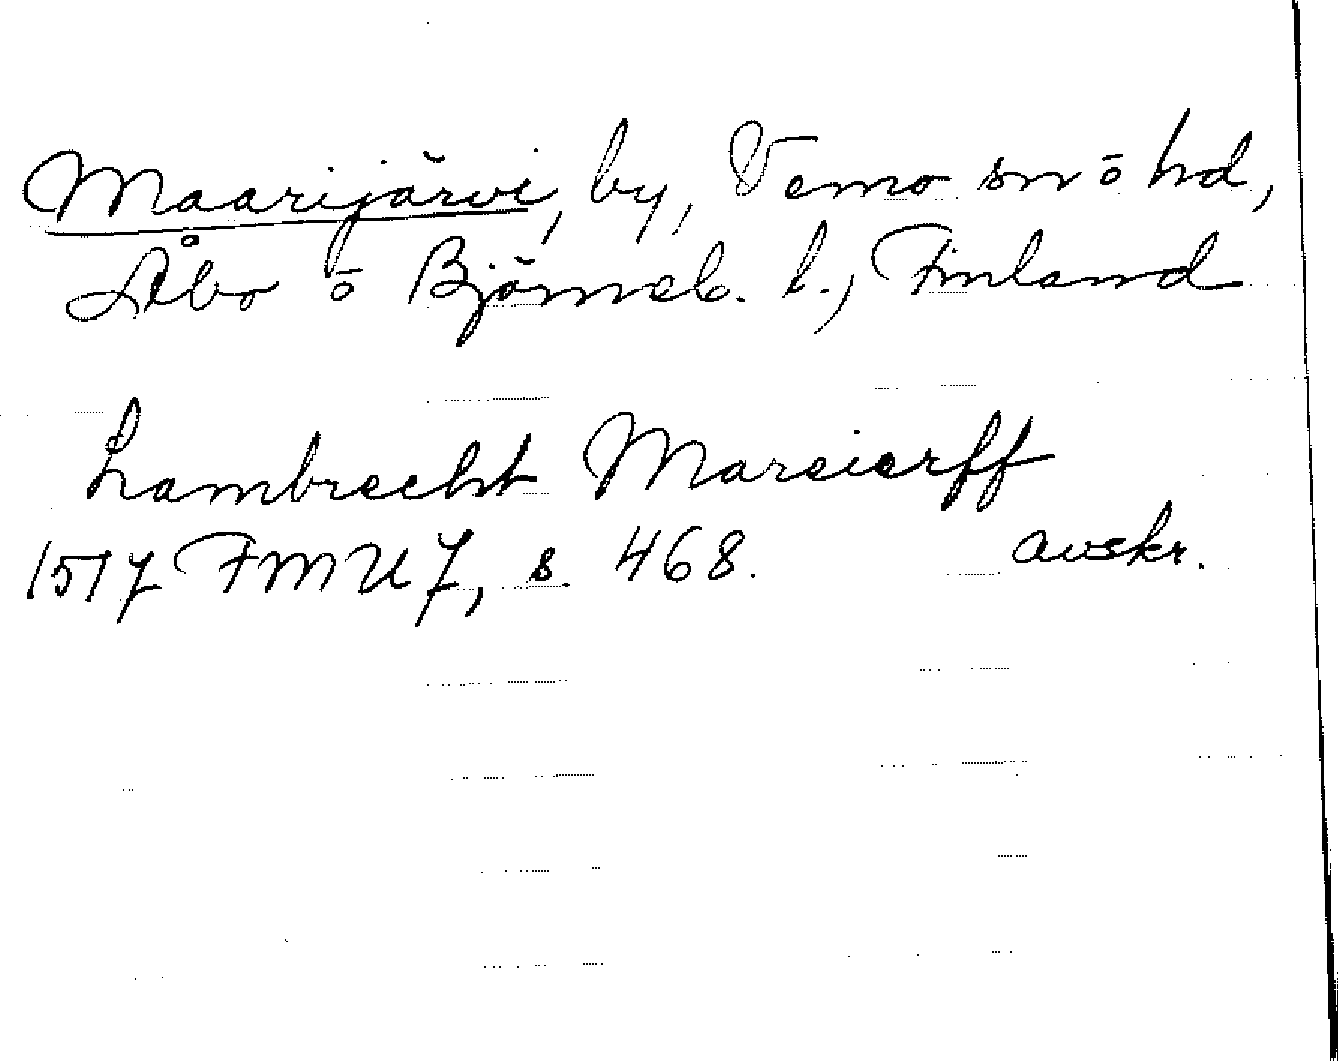 Maarijärvi, by, Vemo sn o hd,
Åbo o Björneb. l., Finland
Lambrecht Marcierff
1517 FMU 7, s. 468. avskr.